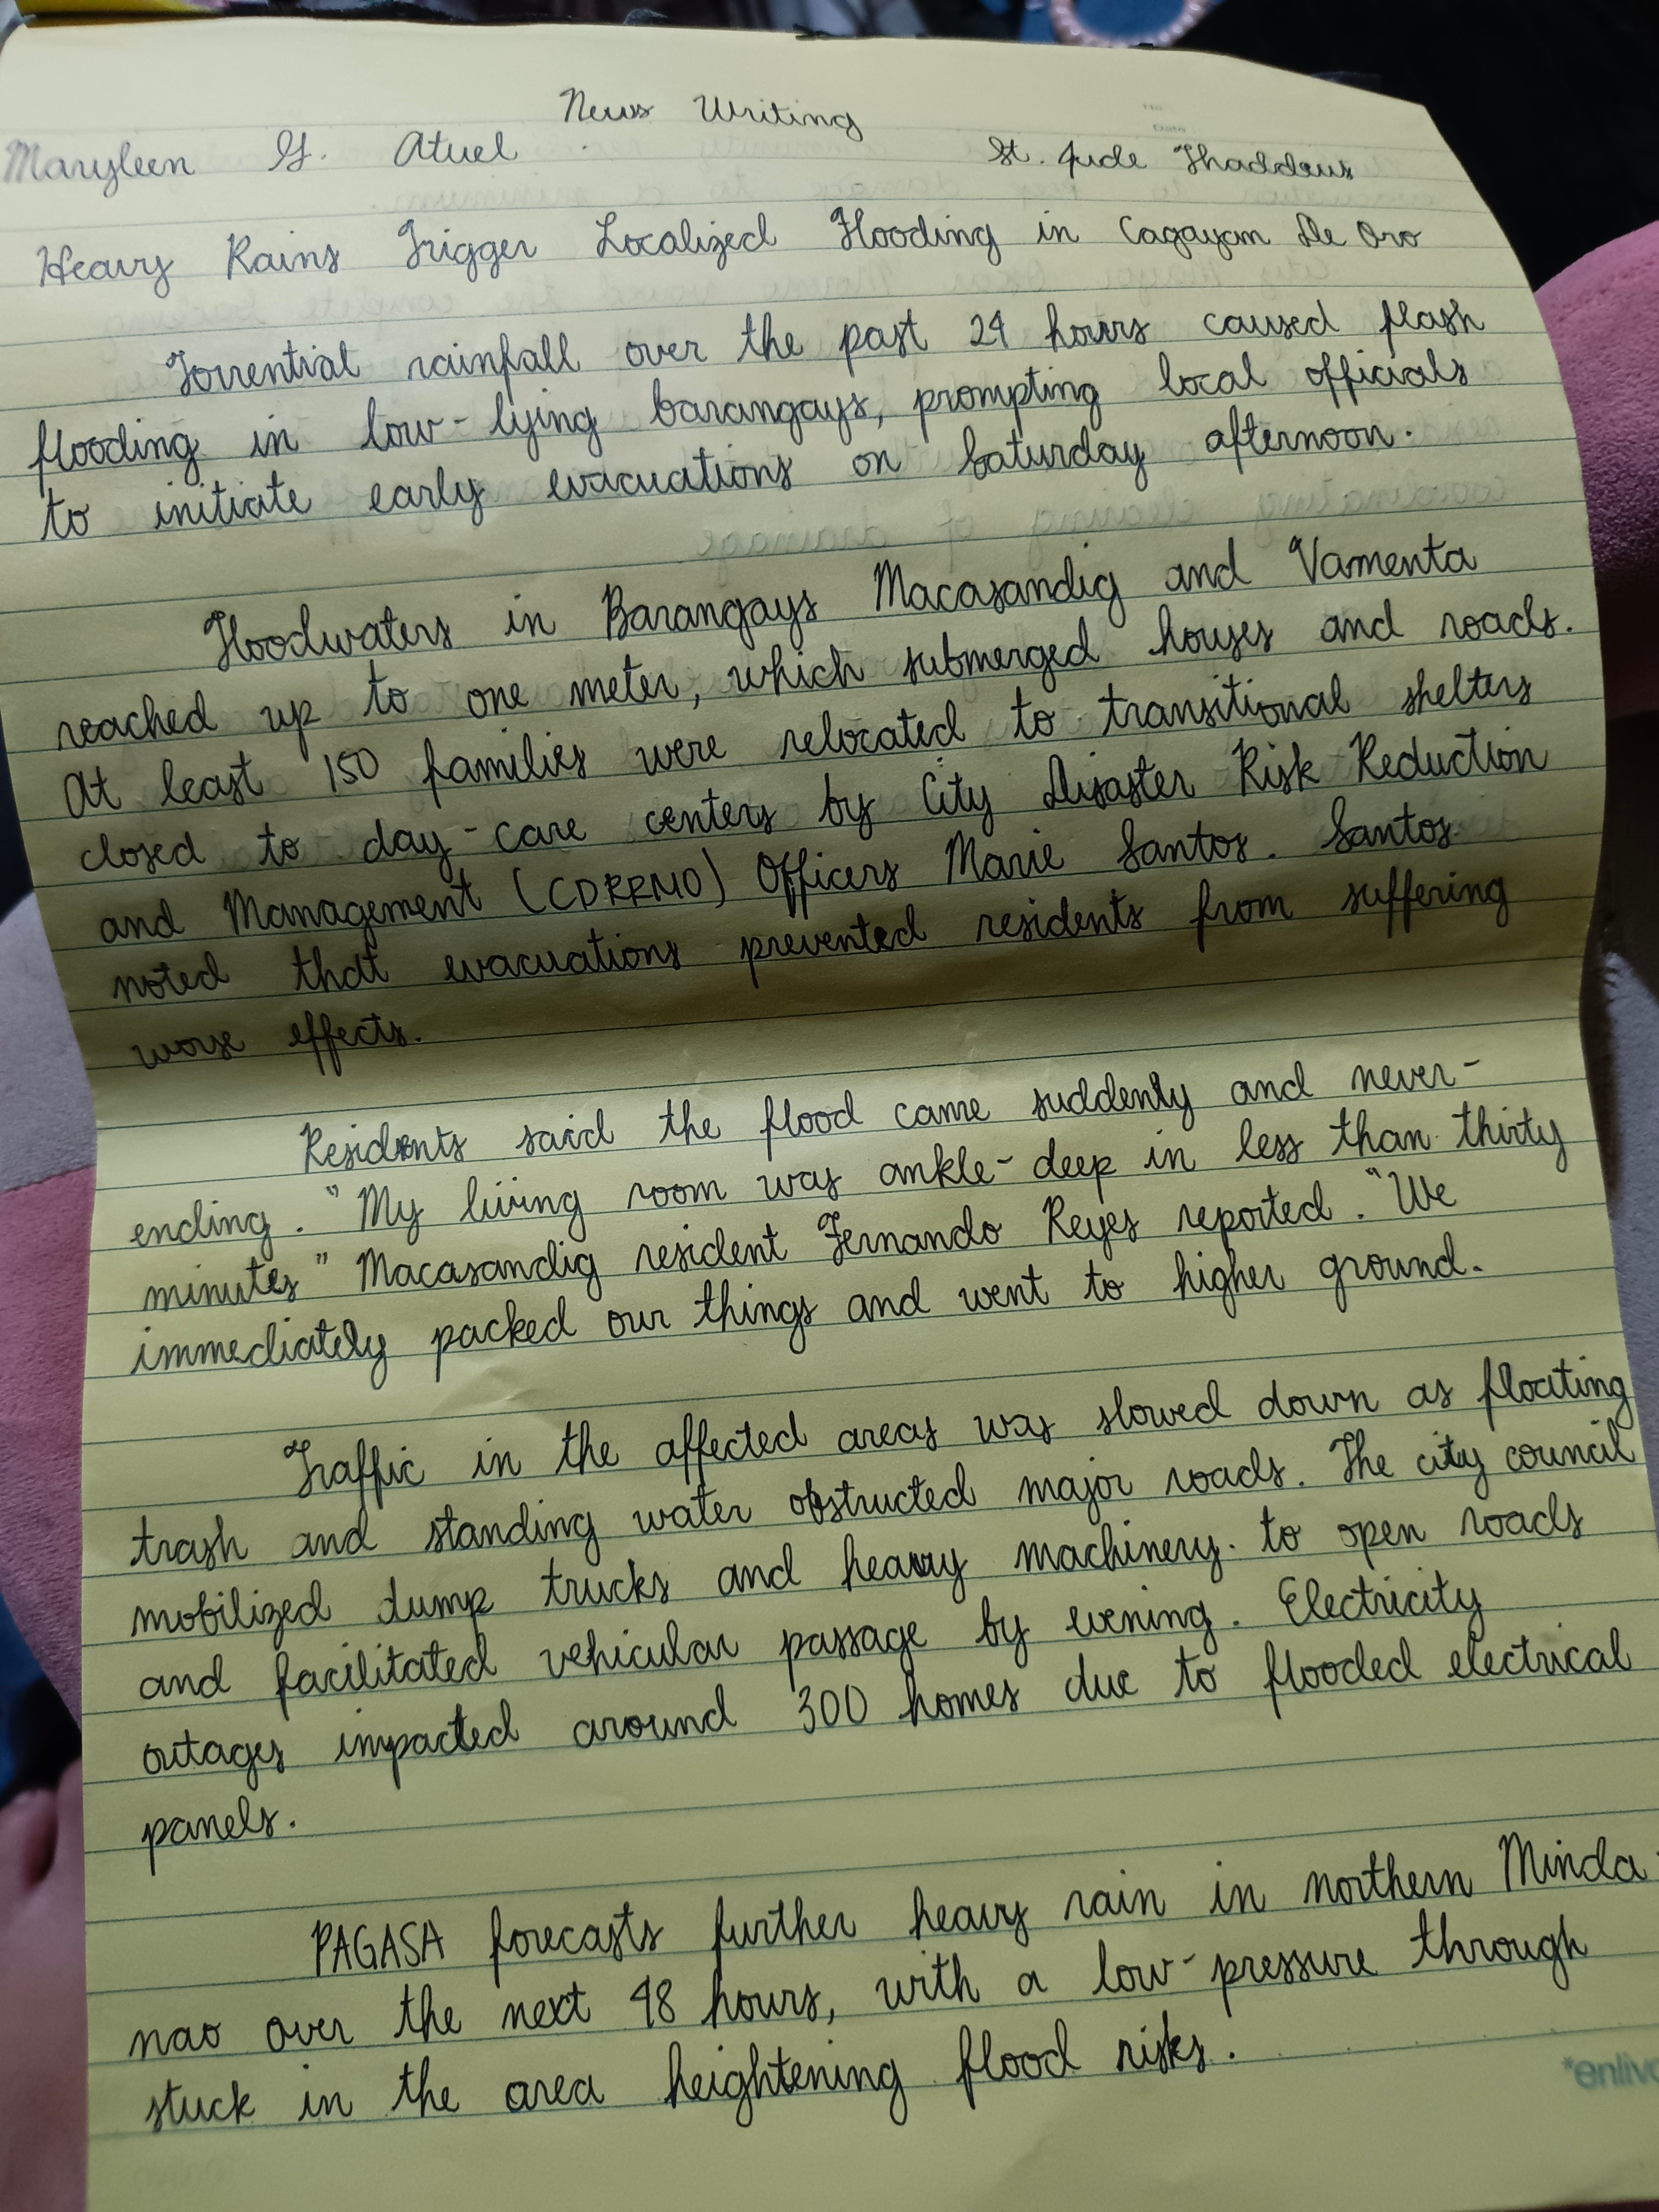 News Writing
Maryleen G. Atuel St. Jude Thaddeus
Heavy Rains Trigger Localized Flooding in Cagayan De Oro
Torrential rainfall over the past 24 hours caused flash
flooding in low-lying barangays, prompting local officials
to initiate early evacuations on Saturday afternoon.
Floodwaters in Barangays Macasandig and Vamenta
reached up to one meter, which submerged houses and roads.
At least 150 families were relocated to transitional shelters
closed to day-care centers by City Disaster Risk Reduction
and Management (CDRRMO) Officers Marie Santos. Santos
noted that evacuations prevented residents from suffering
worse effects.
Residents said the flood came suddenly and never-
ending. "My living room was ankle-deep in less than thirty
minutes" Macasandig resident Fernando Reyes reported. "We
immediately packed our things and went to higher ground.
Traffic in the affected areas was slowed down as floating
trash and standing water obstructed major roads. The city council
mobilized dump trucks and heavy machinery to open roads
and facilitated vehicular passage by evening. Electricity
outages impacted around 300 homes due to flooded electrical
panels.
PAGASA forecasts further heavy rain in northern Minda-
nao over the next 48 hours, with a low-pressure through
stuck in the area heightening flood risks.